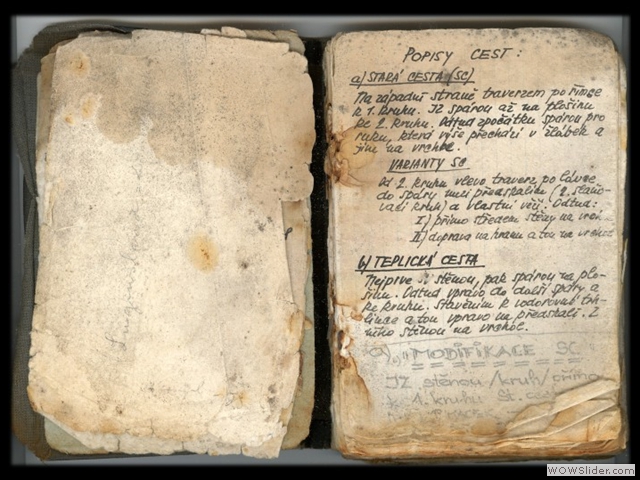 POPISY CEST:
a) STARÁ CESTA (SC)
Na západní straně traverzem po římse
k 1. kruhu. JZ spárou až na plošinu
ke 2. kruhu. Odtud zpočátku spárou pro
ruku, která výše přechází v žlábek a
jím na vrchol.
VARIANTY SC
Od 2. kruhu vlevo travers po lávce
do spáry mezi předskalím (2. slaňo-
vací kruh) a vlastní věží. Odtud:
I) přímo středem stěny na vrch.
II) doprava na hranu a tou na vrchol
b) TEPLICKÁ CESTA
Nejprve stěnou, pak spárou na plo-
šinu. Odtud vpravo do další spáry a
ke kruhu. Stavěním k vodorovné trh-
lince a tou vpravo na předskalí. Z
něho stěnou na vrchol.
MODIFIKACE SC
JZ stěnou /kruh/ přímo
k 1. kruhu St.
WOWSlider.com